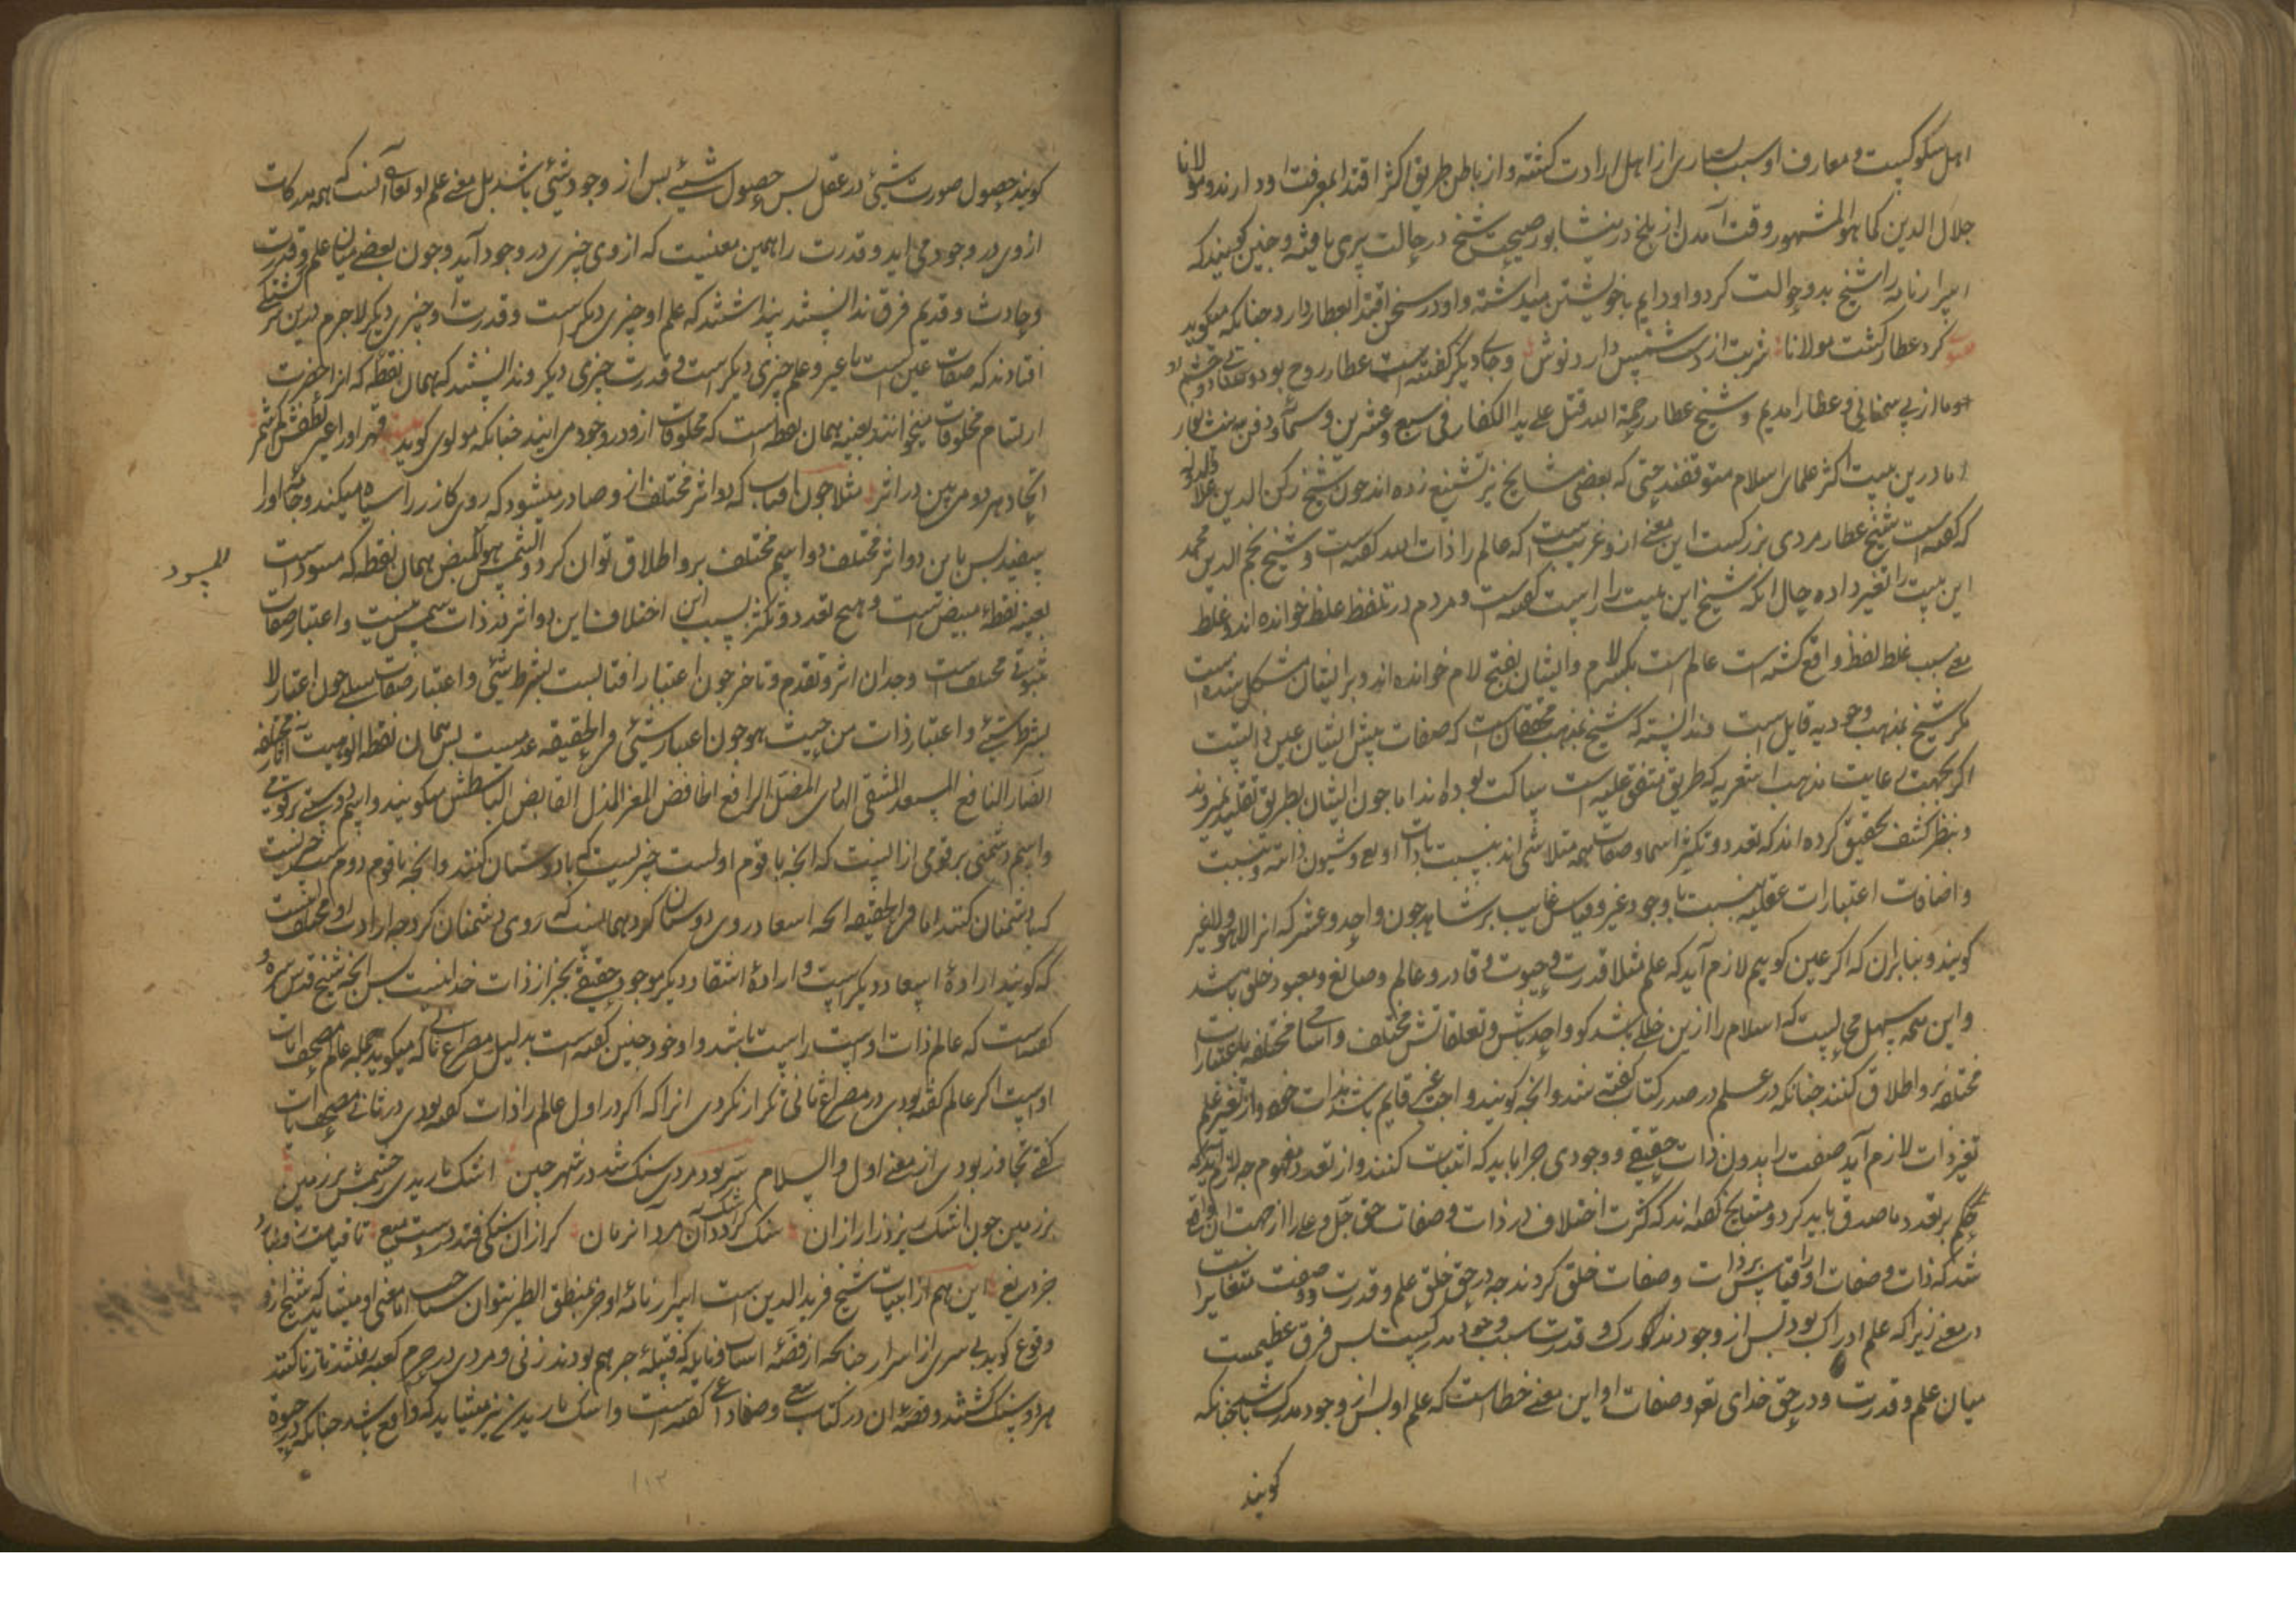 اهل سکو کیست و معارف او سبب بسیاری از اهل ارادت کشته و از باطن طریق اکثر اقتدا بمعرفت او دارند و مولانا
جلال الدین کما هو المشهور وقت آمدن از بلخ در نیشابور بصحبت شیخ در حالت پیری یافته و چنین کویند که
اسرارنامه را شیخ بدو حوالت کرد و او دایم با خویشتن میداشته و او در سخن اقتدا بعطار دارد چنانکه میکوید
کرد عطار کشت مولانا شربت از دست شمس دارد نوش و جای دیگر کفته است عطار روح بود و سنائی دو چشم او
ما از پی سنائی و عطار امدیم و شیخ عطار رحمة الله قتل علی ید الکفار فی سبع و عشرین و ستمائه و دفن به نیشابور
اما درین بیت اکثر علمای اسلام متوقفند حتی که بعضی مشایخ نیز تشنیع زده اند چون شیخ رکن الدین علاء الدوله
که کفته است شیخ عطار مردی بزرکست این معنی ازو غریبست که عالم را ذات الله کفته است و شیخ نجم الدین محمد
این بیت را تغیر داده حال انکه شیخ این بیت را راست کفته است و مردم در تلفظ غلط خوانده اند و غلط
معنی بسبب غلط لفظ واقع کشته است عالم است بکسر لام و ایشان بفتح لام خوانده اند و بر ایشان مشکل شده است
مکر شیخ بمذهب وجودیه قایل است ندانسته که شیخ بمذهب محققانست که صفات پیش ایشان عین ذاتست
اکر بجهت رعایت مذهب اشعریه که طریق متفق علیه است ساکت بوده اند اما چون ایشان بطریق تقلید نمیروند
و بنظر کشف تحقیق کرده اند که تعدد و تکثر اسما و صفات همه متلاشی اند بنسبت با ذات او و شیون ذاته و نسبت
و اضافات اعتبارات عقلیه نسبت با وجود غیر و قیاس غایب بر شاهد چون واحد و عشر که انرا لا هو و لا غیر
کویند و بنابران که اکر عین کوییم لازم آید که علم مثلا قدرت و حیوت و قادر و عالم و صانع و معبود خلق باشد
و این همه سهل محالیست که اسلام را ازین خللی باشد کو واحد باش و تعلقاتش مختلف و اسامی مختلفه باعتبارات
مختلفه برو اطلاق کنند چنانکه در علم در صدر کتاب کفته شد و انچه کویند واجب غیر قایم باشد بذات خود و از تغیر علم
تغیر ذات لازم آید صفت را بدون ذات حقیقی و وجودی چرا باید که اثبات کنند و از تعدد مفهوم چه لازم آید که
حکم بر تعدد ماصدق باید کرد و مشایخ کفته اند که کثرت اختلاف در ذات و صفات حق جل و علا از جهت ان واقع
شد که ذات و صفات او را قیاس بر ذات و صفات خلق کردند چه در حق خلق علم و قدرت دو صفت متغایر است
در معنی زیرا که علم ادراک بود پس از وجود مدرک و قدرت سبب وجود مدرکیست پس فرق عظیمست
میان علم و قدرت و در حق خدای تعه و صفات او این معنی خطاست که علم او پس از وجود مدرک باشد چنانکه
کویند
کویند حصول صورت شیئ در عقل پس حصول شیئ پس از وجود شیئ باشد بل معنی علم او تعالی آنست که همه مدرکات
از وی در وجود می اید و قدرت را همین معنیست که از وی چیزی در وجود آید و چون بعضی میان علم و قدرت
و حادث و قدیم فرق ندانستند پنداشتند که علم او چیزی دیکر است و قدرت او چیزی دیکر لاجرم درین سرکشتکی
افتادند که صفات عین است یا غیر و علم چیزی دیکر است و قدرت چیزی دیکر و ندانستند که همان نقطه که انرا حضرت
ارتسام مخلوقات میخوانند بعینه همان نقطه است که مخلوقات ازو در وجود می ایند چنانکه مولوی کوید قهر او را عین لطفش کم شمر
اتحاد هر دو می بین در اثر مثلا چون افتاب که دو اثر مختلف ازو صادر میشود که روی کازر را سیاه میکند و جامه او را
سفید پس باین دو اثر مختلف دو اسم مختلف برو اطلاق توان کرد و الشمس هو المبیض همان نقطه که مسود است
المسود
بعینه نقطه مبیض است و هیچ تعدد و تکثر بسبب این اختلاف این دو اثر در ذات شمس نیست و اعتبار صفات
ثبوتی مختلفست وجدان اثر و تقدم و تاخر چون اعتبار افتابست بشرط شیئ و اعتبار صفات سلبی چون اعتبار لا
بشرط شیئ و اعتبار ذات من حیث هو چون اعتبار شیئ و فی الحقیقه عدمیست پس همان نقطه الوهیت بآثار مختلفه
الضار النافع المسعد المشقی الهادی المضل الرافع الخافض المعز المذل القابض الباسطش میکویند و اسم دوستی بر قومی
و اسم دشمنی بر قومی از انست که انچه با قوم اولست چیزیست که با دوستان کنند و انچه با قوم دوم است چیزیست
که با دشمنان کنند اما فی الحقیقه انچه اسعاد در وی دوستان کرد همانست که روی دشمنان کرد چه ارادت او مختلف نیست
که کویند اراده اسعاد دیکر است و اراده اشقاد دیکر موجود حقیقی بجز از ذات خدا نیست پس انچه شیخ قدس سره
کفته است که عالم ذات اوست راست باشد و او خود چنین کفته است بدلیل مصراع ثانی که میکوید جمله عالم مصحف ایات
اوست اکر عالم کفته بودی در مصراع ثانی تکرار نکردی انرا که اکر در اول عالم را ذات کفته بودی در ثانی مصحف ایات
کفتی تجاوز بودی از معنی اول و السلام سر بود مردی سنک شد در شهر چین اشک بارید ی ز چشمش بر زمین
بر زمین چون اشک ریز زار ازان سنک کردد اشک آن مرد انزمان کر ازان سنکی فتد در دست میغ تا قیامت زو نبارد
جز دریغ این هم از ابیات شیخ فرید الدین است اسرارنامه او جز منطق الطیر نتوان شناخت اما معنی او میشاید که شیخ از رو
وقوع کوید بی سری از اسرار چنانکه از قصه اساف و نایله که قبیله جرهم بودند زنی و مردی در حرم کعبه رفتند و زنا کردند
هر دو سنک کشتند و قصه ان در کتاب کفته است و اشک باریدن نیز میشاید که واقع باشد چنانکه در حیوة
۱۱۳